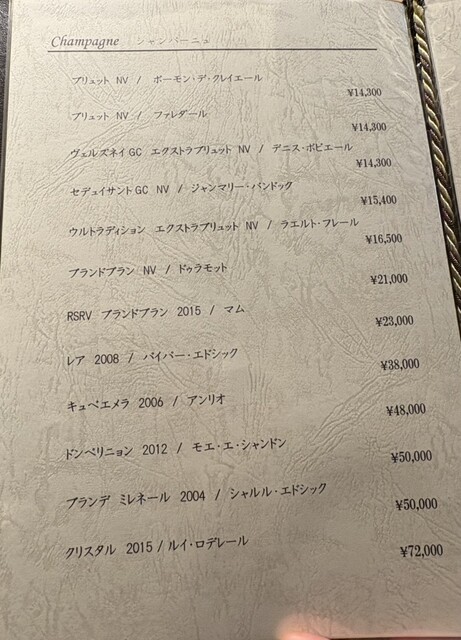 Champagne シャンパーニュ
ブリュット NV / ボーモン・デ・クレイエール
¥14,300
ブリュット NV / ファレダール
¥14,300
ヴェルズネイGC エクストラブリュット NV / デニス・ボビエール
¥14,300
セデュイサントGC NV / ジャンマリー・バンドック
¥15,400
ウルトラディション エクストラブリュット NV / ラエルト・フレール
¥16,500
ブランドブラン NV / ドゥラモット
¥21,000
RSRV ブランドブラン 2015 / マム
¥23,000
レア 2008 / パイパー・エドシック
¥38,000
キュベエメラ 2006 / アンリオ
¥48,000
ドンペリニョン 2012 / モエ・エ・シャンドン
¥50,000
ブランデ ミレネール 2004 / シャルル・エドシック
¥50,000
クリスタル 2015 / ルイ・ロデレール
¥72,000